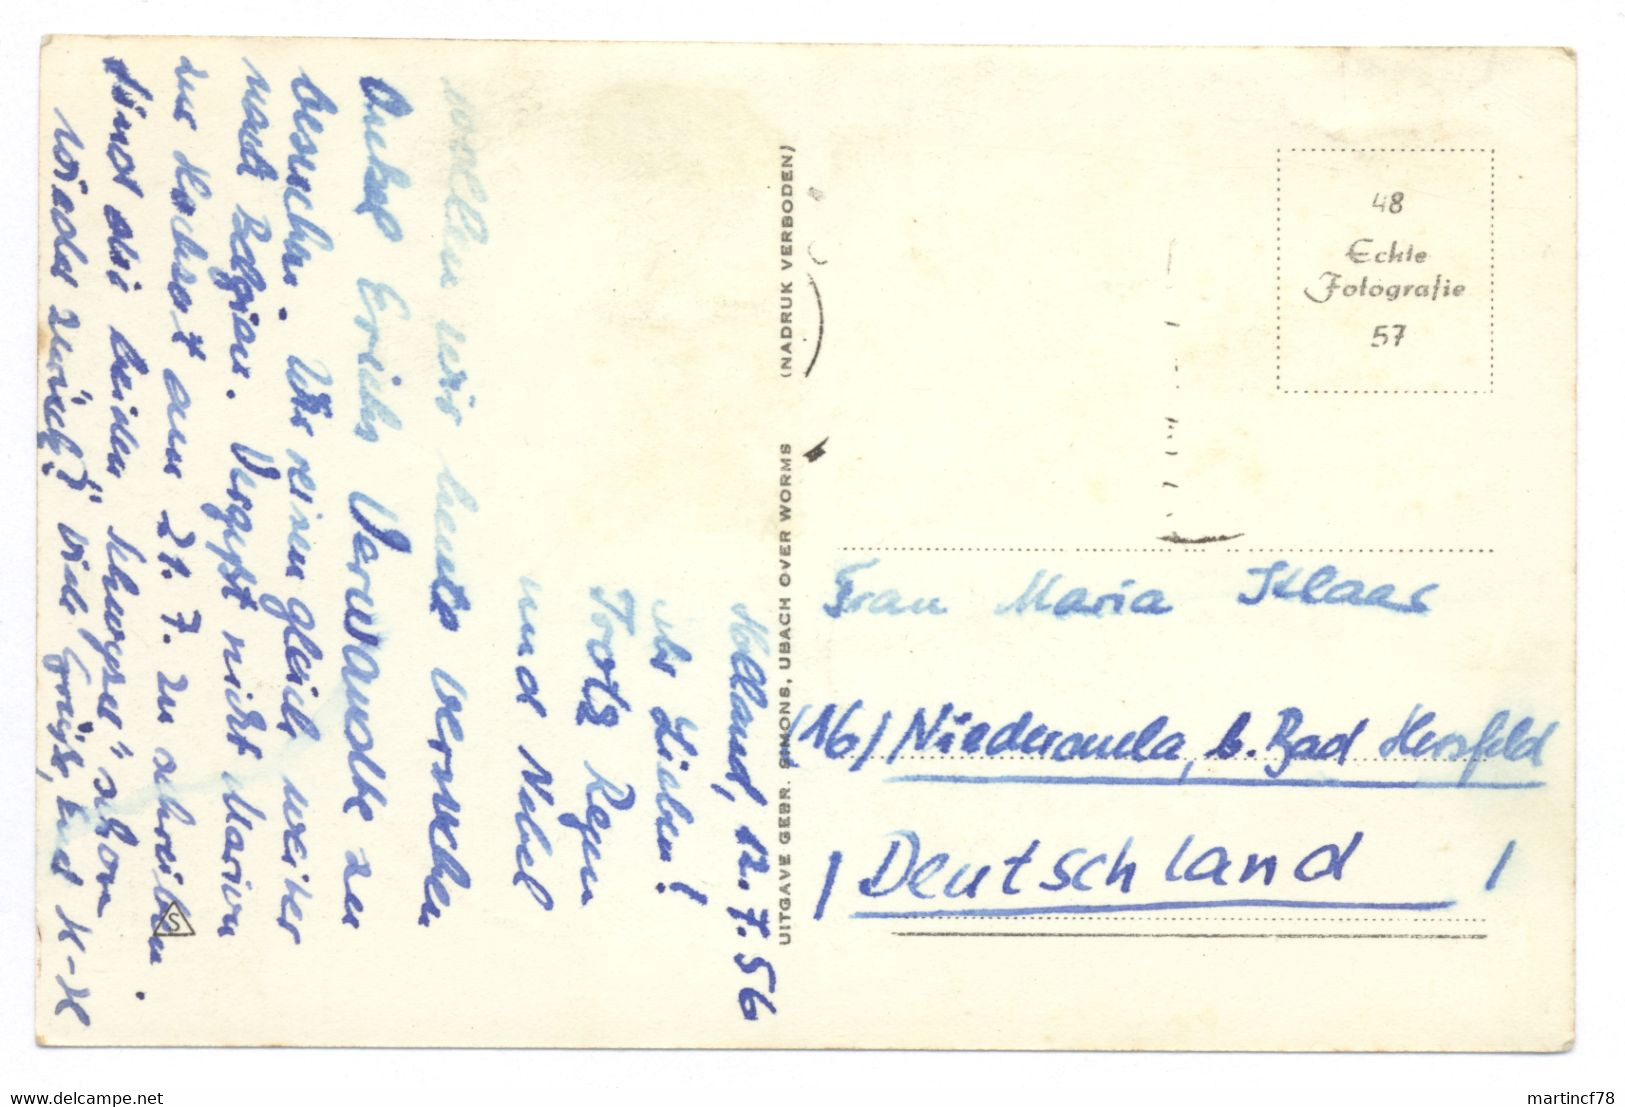 Holland, 12.7.56
Ihr Lieben!
Trotz Regen
und Nebel
wollen wir heute versuchen
Onkel Erichs Verwandte zu
besuchen. Wir reisen gleich weiter
nach Belgien. Vergeßt nicht Marion
zur Hochzeit am 21.7. zu schreiben.
Sind die beiden "Schwoper" schon
wieder zurück? Viele Grüße, Eud K-H
UITGAVE GEBR. SIMONS, UBACH OVER WORMS (NADRUK VERBODEN)
S
48
Echte
Fotografie
57
Frau Maria Klaas
(16) Niederaula, b. Bad Hersfeld
/ Deutschland /
delcampe.net
martincf78